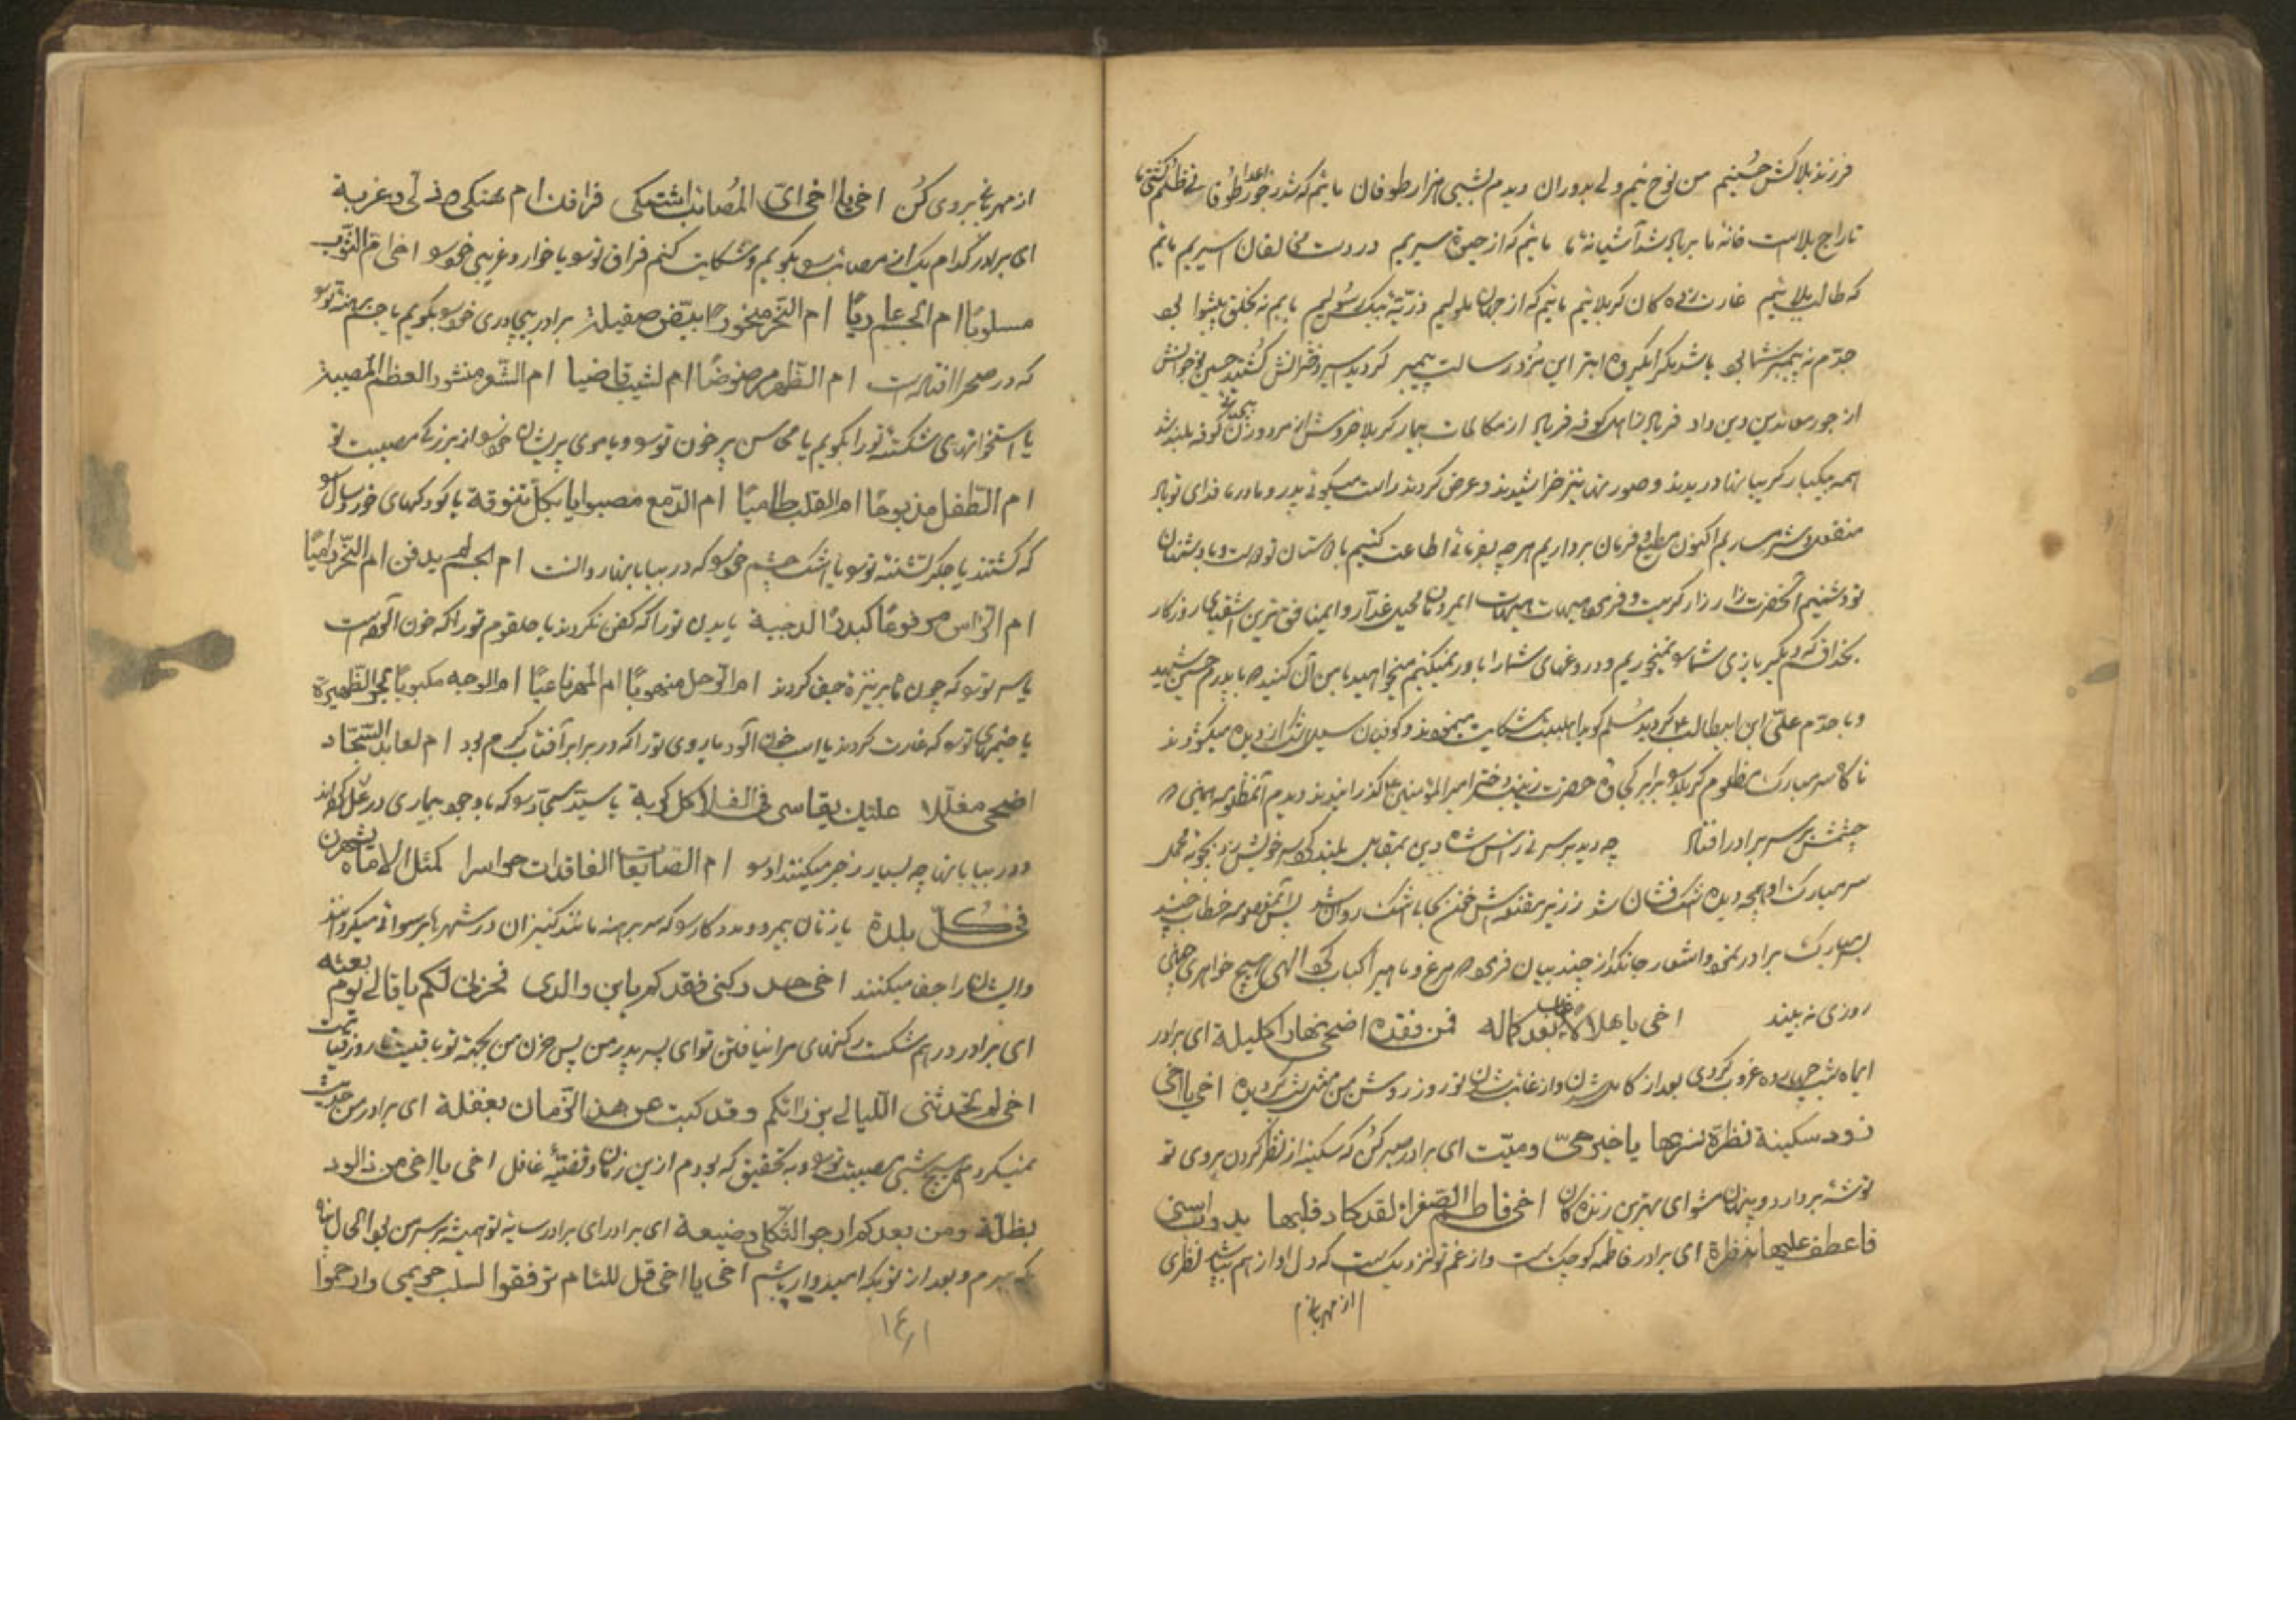 فرزند بلاکش حسینیم من نوح نیم ولی بدوران دیدم بشبی هزار طوفان مائیم که شد ز جور اعدا طوفانی ظلم کشتی ما
تاراج بلاست خانهٔ ما برباد شد آشیانهٔ ما مائیم که از حیوة سیریم در دست مخالفان اسیریم مائیم
که طالب بلائیم غارت زده کان کربلائیم مائیم که از جهان ملولیم ذرّیّهٔ بیکس رسولیم بابم نه بخلق پیشوا بود
جدّم نه پیمبر شما بود باشد مگر ای گروه ابتر این مزد رسالت پیمبر کردید اسیر دخترانش کشتید حسین نوجوانش
از جور معاندین دین داد فریاد ز اهل کوفه فریاد از مکالمات بیمار کربلا خروش از مرد و زن کوفه بلند شد
همه بیکبار گریبانها دریدند و صورتها بناخن خراشیدند و عرض کردند راست میگوئی پدر و مادر ما فدای تو باد
منفعل و شرمساریم اکنون مطیع و فرمان برداریم هرچه بفرمائی اطاعت کنیم با دوستان تو دوست و با دشمنان
تو دشنیم آنحضرت زار زار گریست و فرمود هیهات هیهات ای مردمان محیل غدّار و ای منافق ترین اشقیای روزگار
بخدا قسم که دیگر بازی شما را نمیخوریم و دروغهای شما را باور نمیکنم میخواهید با من آن کنید که با پدرم حسین شهید
و با جدّم علی ابن ابیطالب ع کردید مسلم گوید اهلبیت شکایت مینمودند و کوفیان سیل اشک از دیده میگشودند
ناگاه سر مبارک مظلوم کربلا را برابر کجاوهٔ حضرت زینب دختر امیر المؤمنین ع گذرانیدند دیدم آنمظلومه همینکه
چشمش بر سر برادر افتاد چه دید بر سر نی رأس شاه دین بمقابل بلند کرد سر خویش زد بچوبه محمل
سر مبارک او همچو دیده اشک فشان شد ز زیر مقنعه اش خون بجای اشک روان شد پس آنمعصومه خطاب چند
بسر مبارک برادر نمود و اشعار جانگداز چند بیان فرمود که مرغ و ماهی را کباب کرد الهی هیچ خواهری چنین
روزی نه بیند اخی یا هلالا غاب بعد کماله فمن فقده اضحی نهاری کلیلة ای برادر
ای ماه شب چهارده غروب کردی بعد از کامل شدن و از غائب شدن تو روز روشن من مثل شب گردیده اخی یا اخی
زود سکینة نظرة نسرها یا خیر حیّ و میّت ای برادر صبر کن که سکینه از نظر کردن بروی تو
توشه بردارد و پنهان مشو ای بهترین زنده کان اخی فاطم الصغراء لقد کاد قلبها یذوب اسی
فاعطف علیها بنظرة ای برادر فاطمه کوچک است و از غم تو نزدیکست که دل او از هم بپاشد نظری
از مهربانی
از مهربانی بروی کن اخی یا اخی ایّ المصائب اشتکی فراقک ام هتکی و ذلّی و غربة
ای برادر کدام یک از مصائب را بگویم و شکایت کنم فراق تو را یا خوار و غریبی خود را اخی ام الثوب
مسلوبا ام الجسم عاریا ام النحر منحورا بسیف صقیلة برادر بیچادری خود را بگویم یا جسم برهنه تو را
که در صحرا افتاده است ام الظهر مرضوضا ام الشیب قانیا ام الشعر منشورا لعظم المصیبة
یا استخوانهای شکستهٔ تو را بگویم یا محاسن پر خون تو را و یا موی پریشان خود را از بزرگی مصیبت تو
ام الطفل مذبوحا ام القلب ظامیا ام الدّمع مصبوبا بکلّ تنوفة یا کودکهای خورد سال را
که کشتند یا جگر تشنهٔ تو را یا اشک چشم خود را که در بیابانها روانست ام الجسم لم یدفن ام النحر دامیا
ام الرّاس مرفوعا کبدر الدجیة یا بدن تو را که کفن نکردند یا حلقوم تو را که خون آلودست
یا سر تو را که چون ماه بر نیزه جفا کردند ام الرّحل منهوبا ام المهر ناعیا ام الوجه مکبوبا بحرّ الظهیرة
یا خیمهای تو را که غارت کردند یا اسب خون آلود یا روی تو را که در برابر آفتاب گرم بود ام العابد السجّاد
اضحی مغلّلا علیل یقاسی فی الفلا کل کربة یا سیّد سجّاد را که با وجود بیماری در غل کردند
و در بیابانها چه بسیار زجر میکنند او را ام الضایعات الفاقدات حواسرا کمثل الاماء یشهرن
فی کلّ بلدة یا زنان بیمرد و مددکار را که سر برهنه مانند کنیزان در شهرها برسوائی میگردانند
و ایشان را جفا میکنند اخی هدّ رکنی فقدکم یابن والدی فحزنی لکم باق الی یوم بعثه
ای برادر درهم شکست رکنهای مرا نیافتن تو ای پسر پدر من پس حزن من بجهة تو باقیست تا روز قیامت
اخی لم تحدّثنی اللیالی برزائکم و قد کنت عن هذا الزّمان بغفلة ای برادر من حدیث
نمیکردم هیچ شبی مصیبت تو را و به تحقیق که بودم ازین زمان و قضیّه غافل اخی یا اخی من ذا الوذ
بظلّه و من بعدکم ارجو الثّکلی و ضیعة ای برادر ای برادر سایهٔ تو همیشه بر سر من بود الحال پناه
بکه برم و بعد از تو بکه امیدوار باشم اخی یا اخی قل للئام ترفقوا لسلب حریمی وارحموا
۱۴۱